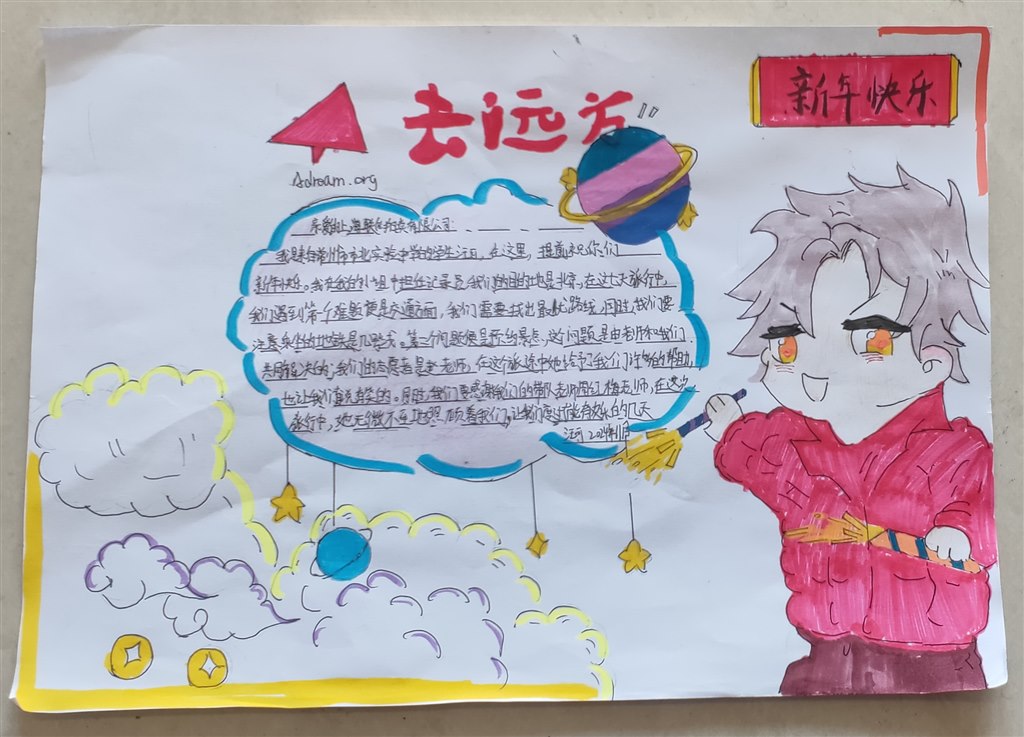 新年快乐
去远方
Adream.org
亲爱的上海联和投资有限公司：
我是来自常州市市北实验中学的学生汪可，在这里，提前祝你们
新年快乐。我在我的小组中担任记录员，我们的目的地是北京，在这七天旅行中，
我们遇到第一个难题便是交通方面，我们需要找出最优路线，同时，我们要
注意乘坐的地铁是几号线。第二个问题便是所的景点，这个问题是由老师和我们
共同解决的，我们的志愿者是老师，在这旅途中她给予我们许多的帮助，
也让我们真是有笑的。同时，我们要感谢我们的带队老师周红梅老师，在这次
旅行中，她无微不至地照顾着我们，让我们度过能有效的几天
汪可 2024年1月